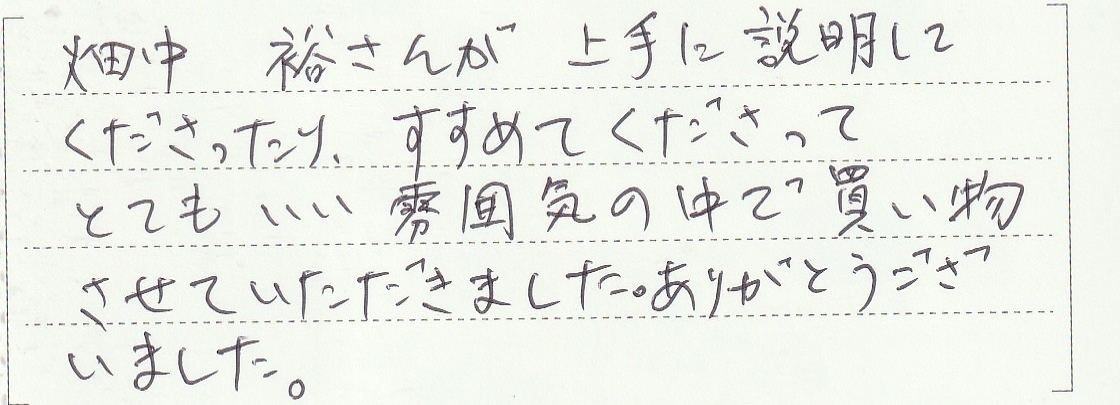 畑中 裕さんが 上手に説明して
くださったり、すすめてくださって
とてもいい雰囲気の中で買い物
させていただきました。ありがとうござ
いました。